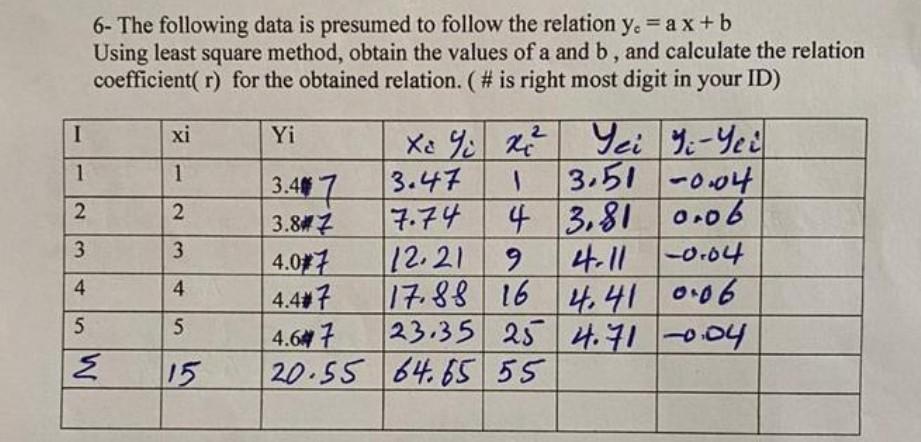 6- The following data is presumed to follow the relation yc = a x + b
Using least square method, obtain the values of a and b , and calculate the relation
coefficient( r) for the obtained relation. ( # is right most digit in your ID)
I xi Yi xi yi xi² yci yi-yci
1 1 3.4#7 3.47 1 3.51 -0.04
2 2 3.8#7 7.74 4 3.81 0.06
3 3 4.0#7 12.21 9 4.11 -0.04
4 4 4.4#7 17.88 16 4.41 0.06
5 5 4.6#7 23.35 25 4.71 -0.04
Σ 15 20.55 64.65 55